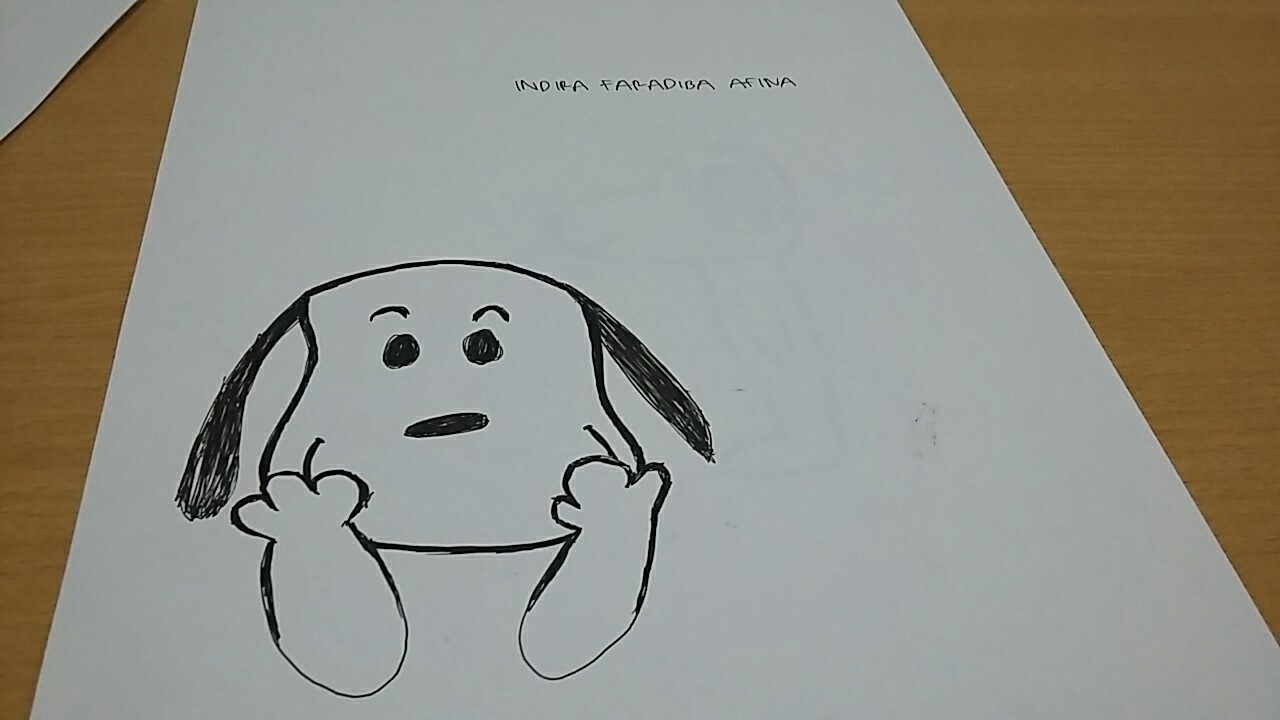 INDIRA FARADIBA AFINA